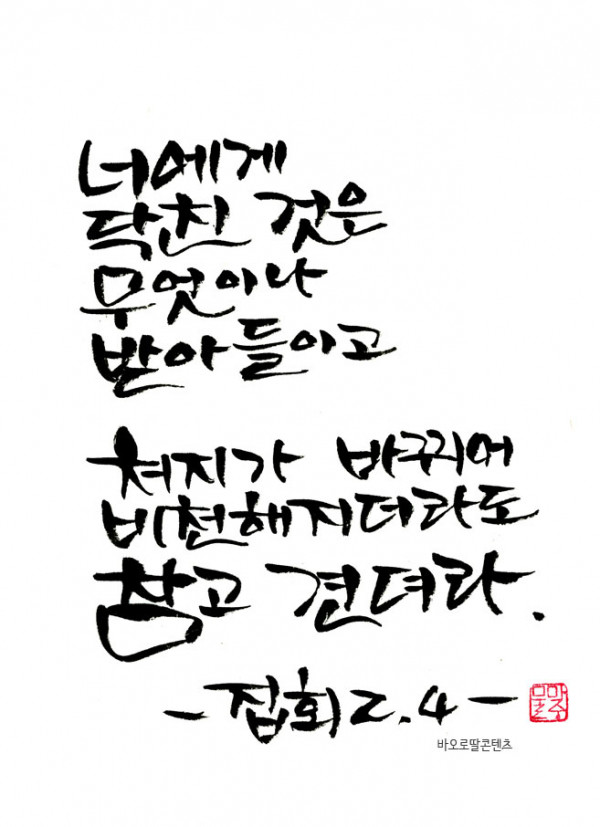 너에게
닥친 것은
무엇이나
받아들이고
처지가 바뀌어
비천해지더라도
참고 견뎌라.
-집회 2.4-
바오로딸콘텐츠